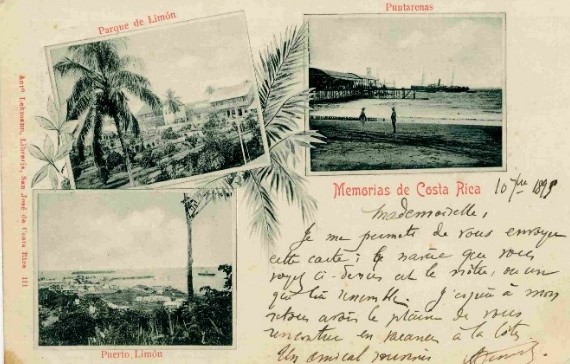 Parque de Limón
Puntarenas
Antº Lehmann, Librería, San José de Costa Rica III
Memorias de Costa Rica
10
Mademoiselle,
Je me permets de vous envoyer
cette carte; le navire que vous
voyez ci-dessus est le nôtre, ou un
qui lui ressemble. J'espère à mon
retour avoir le plaisir de vous
rencontrer en vacances à la côte
Un amical souvenir
Puerto Limón